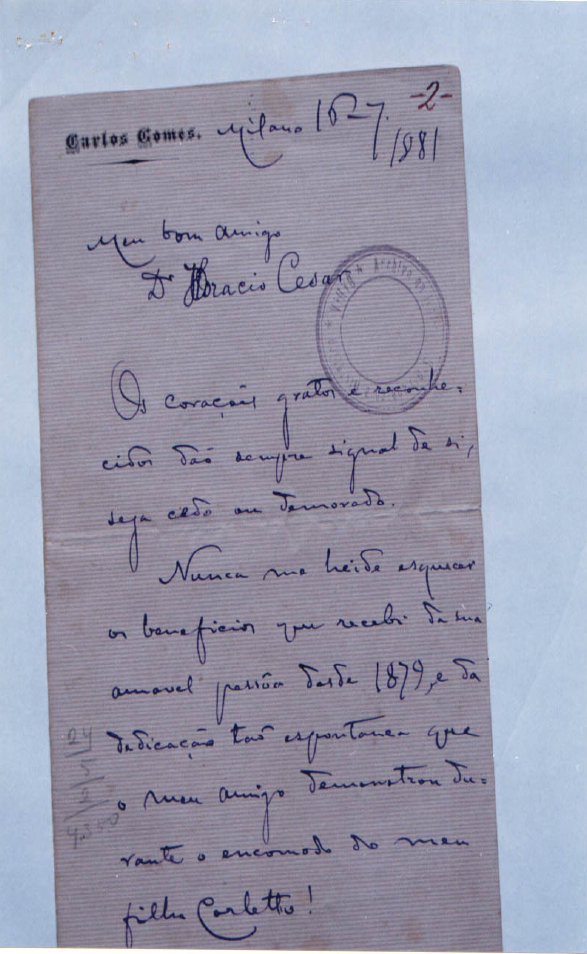 -2-
Carlos Gomes. Milano 16-7
/1881
Meu bom amigo
Dr Horacio Cesar
Os coraçoẽs gratos e reconhe=
cidos daõ sempre signal de si,
seja cedo ou demorado.
Nunca me heide esquecer
os beneficios que recebi da sua
amavel pessôa desde 1879, e da
dedicaçaõ taõ espontanea que
o meu amigo demonstrou du=
rante o encomodo do meu
filho Carletto!